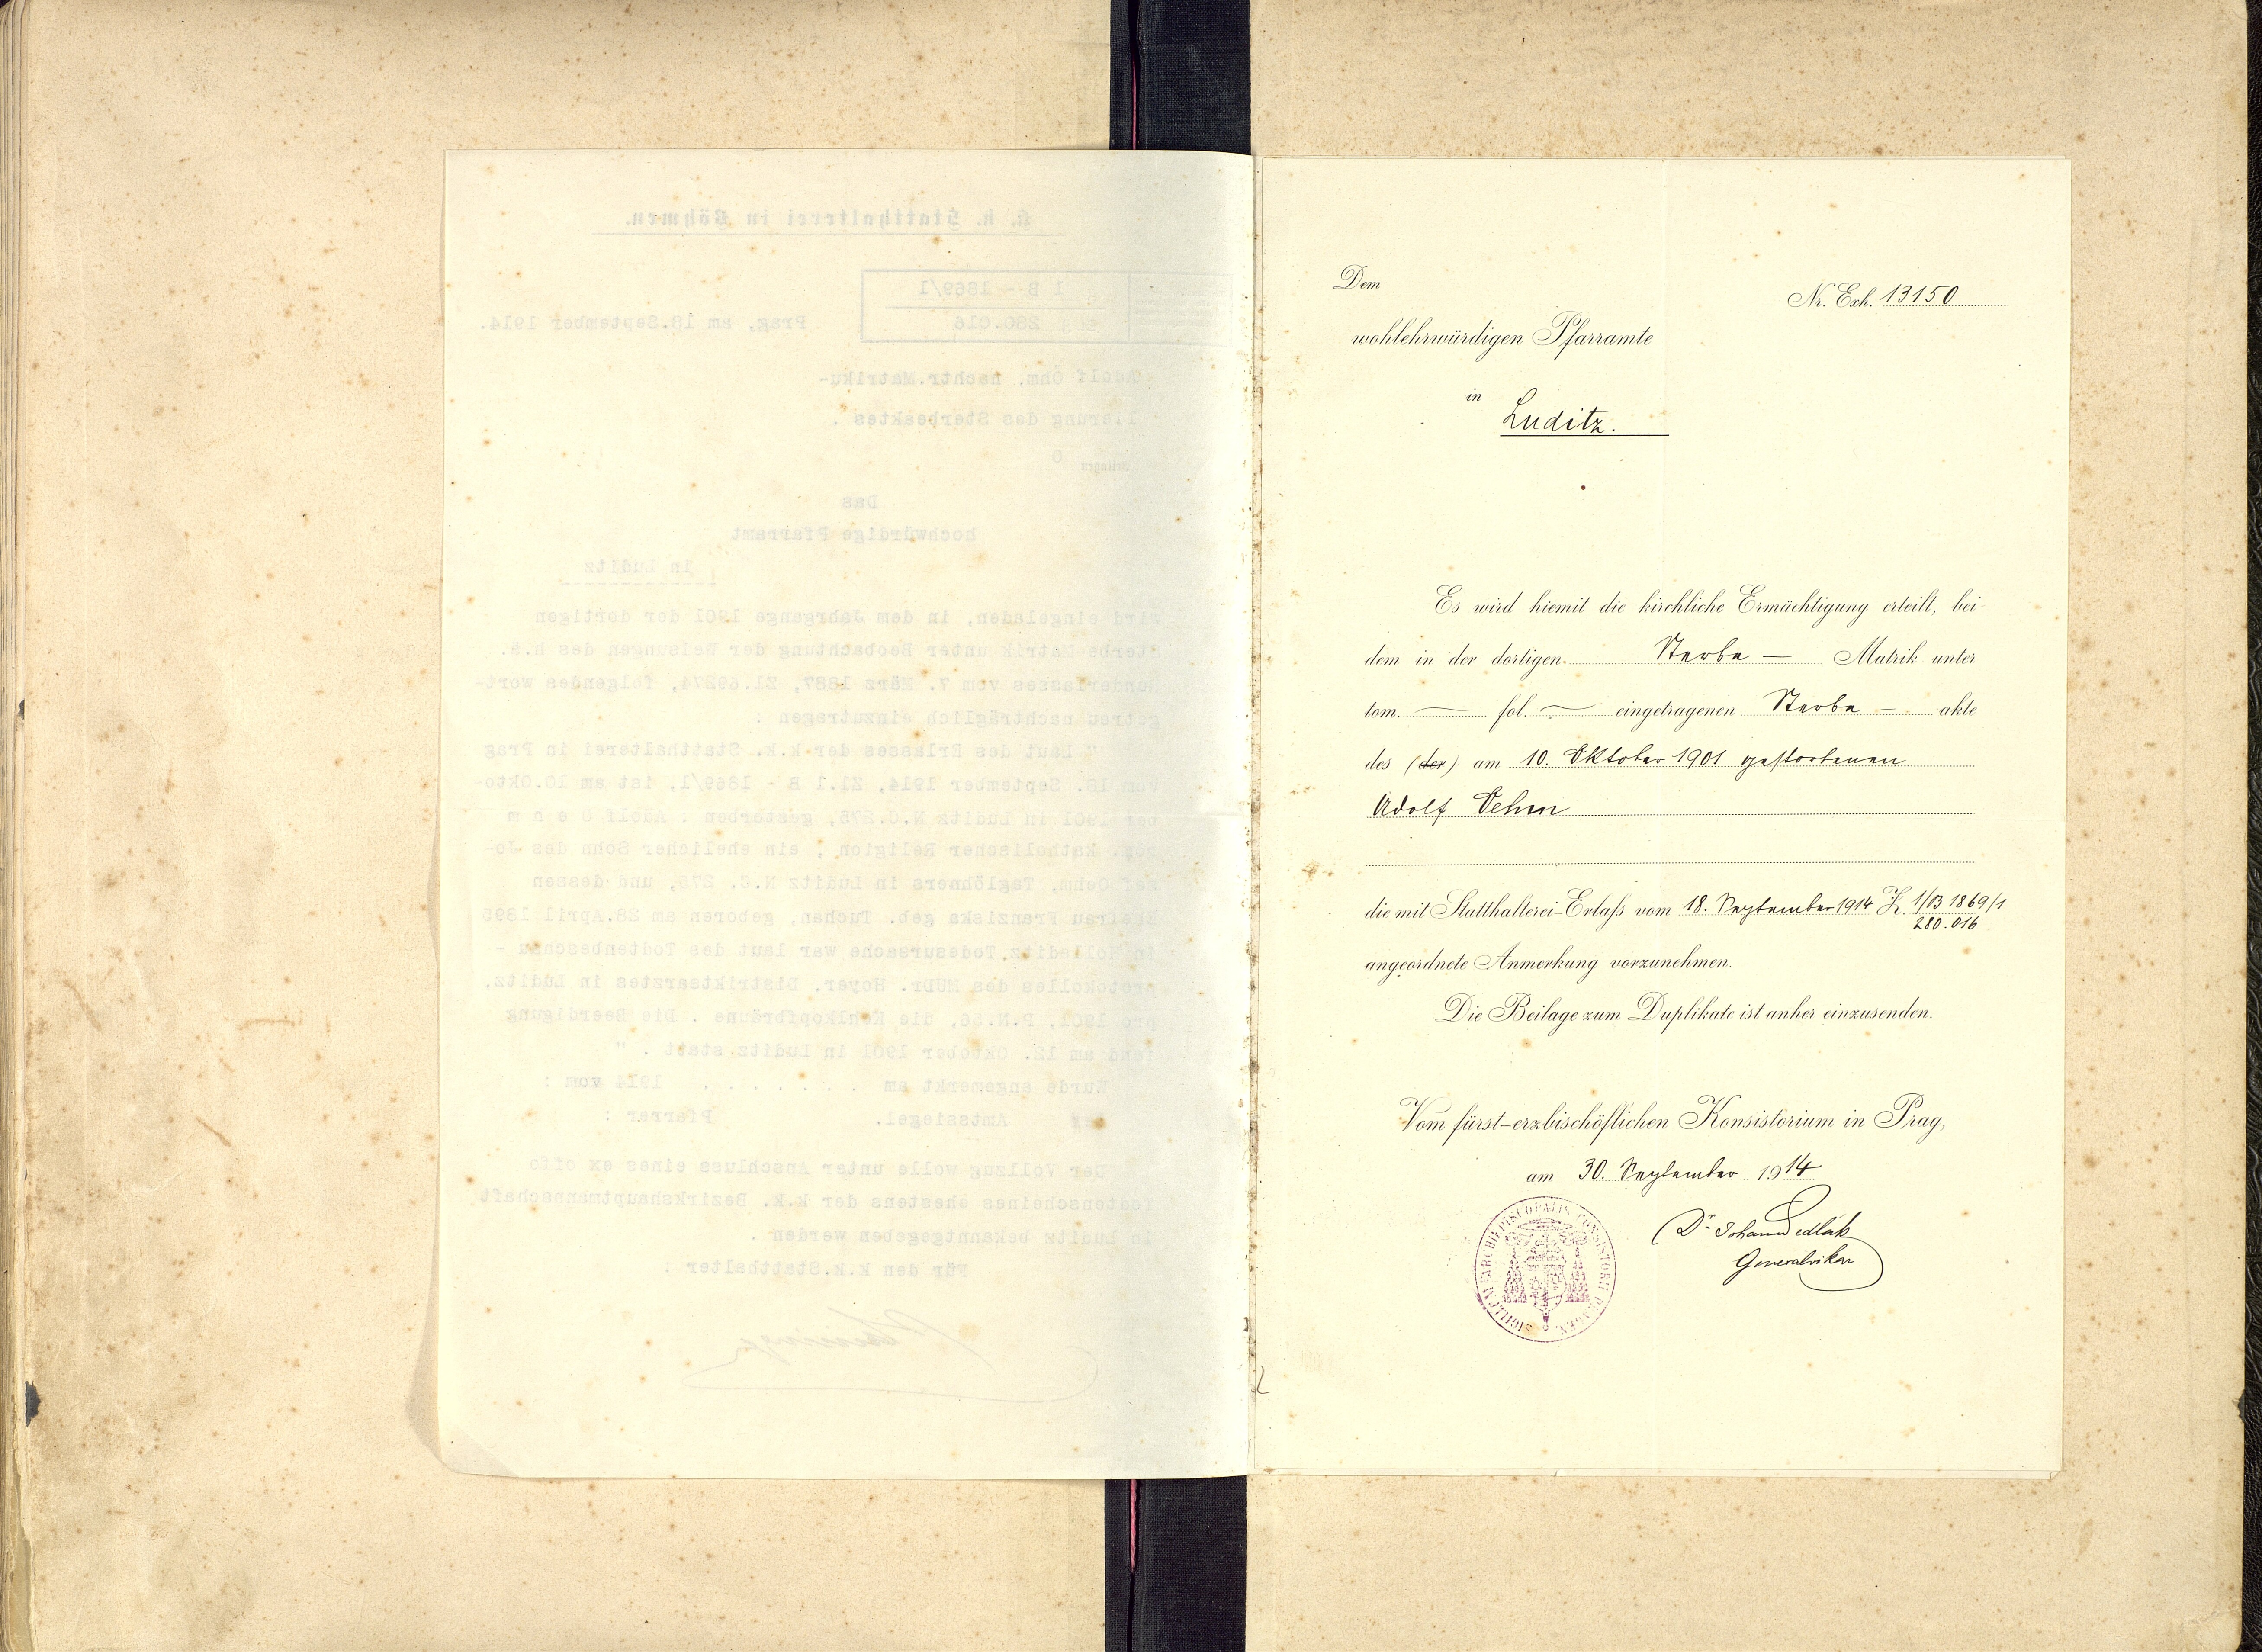 K. k. Statthalterei in Böhmen.
1 B - 1869/1
280.016
Prag, am 18.September 1914.
Adolf Öhm, nachtr.Matriku-
lierung des Sterbeaktes .
Beilagen 0
Das
hochwürdige Pfarramt
in Luditz
wird eingeladen, in dem Jahrgange 1901 der dortigen
Sterbe-Matrik unter Beobachtung der Weisungen des h.ä.
Runderlasses vom 7. März 1887, Zl.69274, folgendes wort-
getreu nachträglich einzutragen :
" Laut des Erlasses der k.k. Statthalterei in Prag
vom 18. September 1914, Zl.1 B - 1869/1, ist am 10.Okto-
ber 1901 in Luditz N.C.275, gestorben : Adolf O e h m
katholischer Religion , ein ehelicher Sohn des Jo-
sef Oehm, Taglöhners in Luditz N.C. 275, und dessen
Ehefrau Franziska geb. Tuchan, geboren am 28.April 1895
in Todesursache war laut des Todtenbeschau -
protokolles des MUDr. Hoyer, Distriktsarztes in Luditz,
pro 1901, P.N.66, die Kehlkopfbräune . Die Beerdigung
fand am 12. Oktober 1901 in Luditz statt . "
Wurde angemerkt am . . . . . . . 1914 vom :
Amtssiegel. Pfarrer :
Der Vollzug wolle unter Anschluss eines ex offo
Todtenscheines ehestens der k.k. Bezirkshauptmannschaft
in Luditz bekanntgegeben werden .
Für den k.k.Statthalter :
Dem
Nr. Exh. 13150
wohlehrwürdigen Pfarramte
in
Luditz.
Es wird hiemit die kirchliche Ermächtigung erteilt, bei
dem in der dortigen Sterbe — Matrik unter
tom. — fol. — eingetragenen Sterbe — akte
des (der) am 10. Oktober 1901 gestorbenen
Adolf Oehm
die mit Statthalterei-Erlaß vom 18. September 1914 Z. 1/B 1869/1
280.016
angeordnete Anmerkung vorzunehmen.
Die Beilage zum Duplikate ist anher einzusenden.
Vom fürst-erzbischöflichen Konsistorium in Prag,
am 30. September 1914
Dr. Johann Sedlák
Generalvikar
SIGILLUM ARCHIEPISCOPALIS CONSISTORII PRAGEN.
2